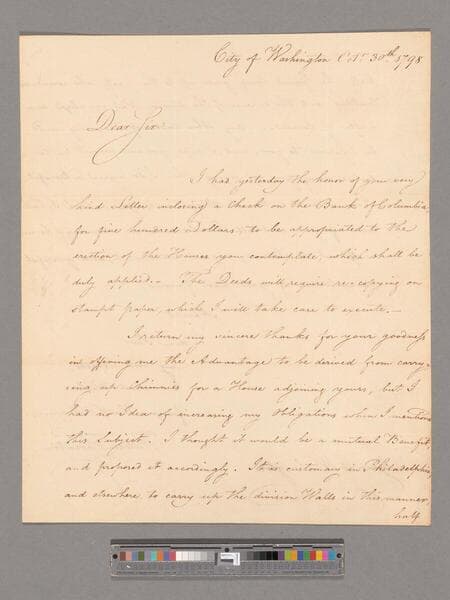 City of Washington Octr. 30th. 1798
Dear Sir
I had yesterday the honor of your very
kind Letter inclosing a Check on the Bank of Columbia
for five hundred Dollars, to be appropriated to the
erection of the Houses you contemplate, which shall be
duly applied.- The Deeds will require re-copying on
stampt paper, which I will take care to execute.-
I return my sincere thanks for your goodness
in offering me the Advantage to be derived from carry-
ing up Chimnies for a House adjoining yours, but I
had no Idea of increasing my Obligations when I mentioned
this Subject. I thought it would be a mutual Benefit
and proposed it accordingly. It is customary in Philadelphia
and elsewhere to carry up the division Walls in this manner
half